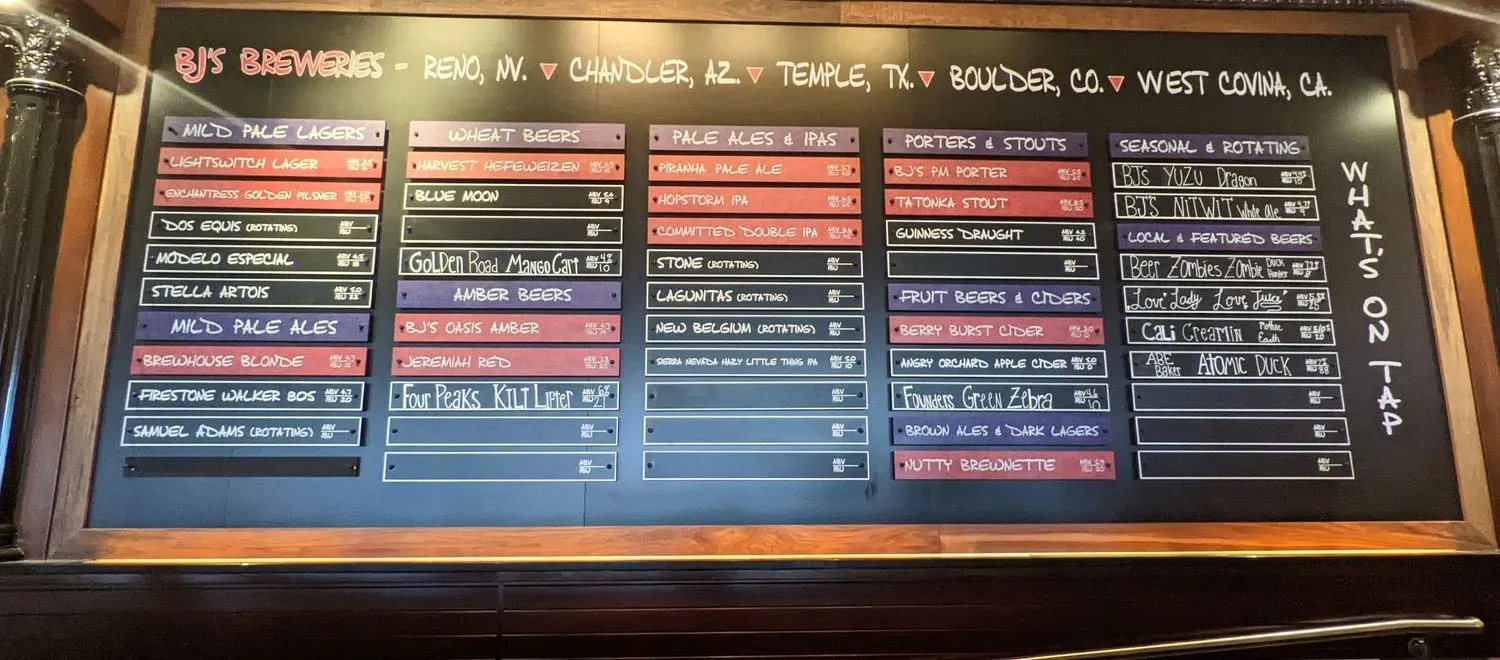 BJ'S BREWERIES - RENO, NV. CHANDLER, AZ. TEMPLE, TX. BOULDER, CO. WEST COVINA, CA.
MILD PALE LAGERS
LIGHTSWITCH LAGER
ENCHANTRESS GOLDEN PILSNER
DOS EQUIS (ROTATING) ABV IBU
MODELO ESPECIAL
STELLA ARTOIS ABV 5.0
MILD PALE ALES
BREWHOUSE BLONDE
FIRESTONE WALKER 805 ABV 4.7 IBU 20
SAMUEL ADAMS (ROTATING) ABV IBU
WHEAT BEERS
HARVEST HEFEWEIZEN
BLUE MOON ABV 5.4 IBU 9
ABV IBU
GOLDEN Road MANGO CART ABV 4% IBU 10
AMBER BEERS
BJ'S OASIS AMBER
JEREMIAH RED
Four Peaks KILT LIFTER ABV 6% IBU 21
ABV IBU
ABV IBU
PALE ALES & IPAS
PIRANHA PALE ALE
HOPSTORM IPA
COMMITTED DOUBLE IPA
STONE (ROTATING) ABV IBU
LAGUNITAS (ROTATING) ABV IBU
NEW BELGIUM (ROTATING) ABV IBU
SIERRA NEVADA HAZY LITTLE THING IPA ABV 5.0 IBU 10
ABV IBU
ABV IBU
ABV IBU
PORTERS & STOUTS
BJ'S PM PORTER
TATONKA STOUT
GUINNESS DRAUGHT ABV 4.2 IBU 40
ABV IBU
FRUIT BEERS & CIDERS
BERRY BURST CIDER
ANGRY ORCHARD APPLE CIDER ABV 5.0 IBU 0
Founders Green Zebra ABV 4.6 IBU 10
BROWN ALES & DARK LAGERS
NUTTY BREWNETTE
SEASONAL & ROTATING
BJ's YUZU Dragon
BJ'S NITWIT White Ale
LOCAL & FEATURED BEERS
Beer Zombies Zombie Duck Hunter
Love Lady Love Juice
CALI CREAMIN Mother Earth
ABE Baker ATOMIC DUCK
ABV IBU
ABV IBU
ABV IBU
WHAT'S ON TAP